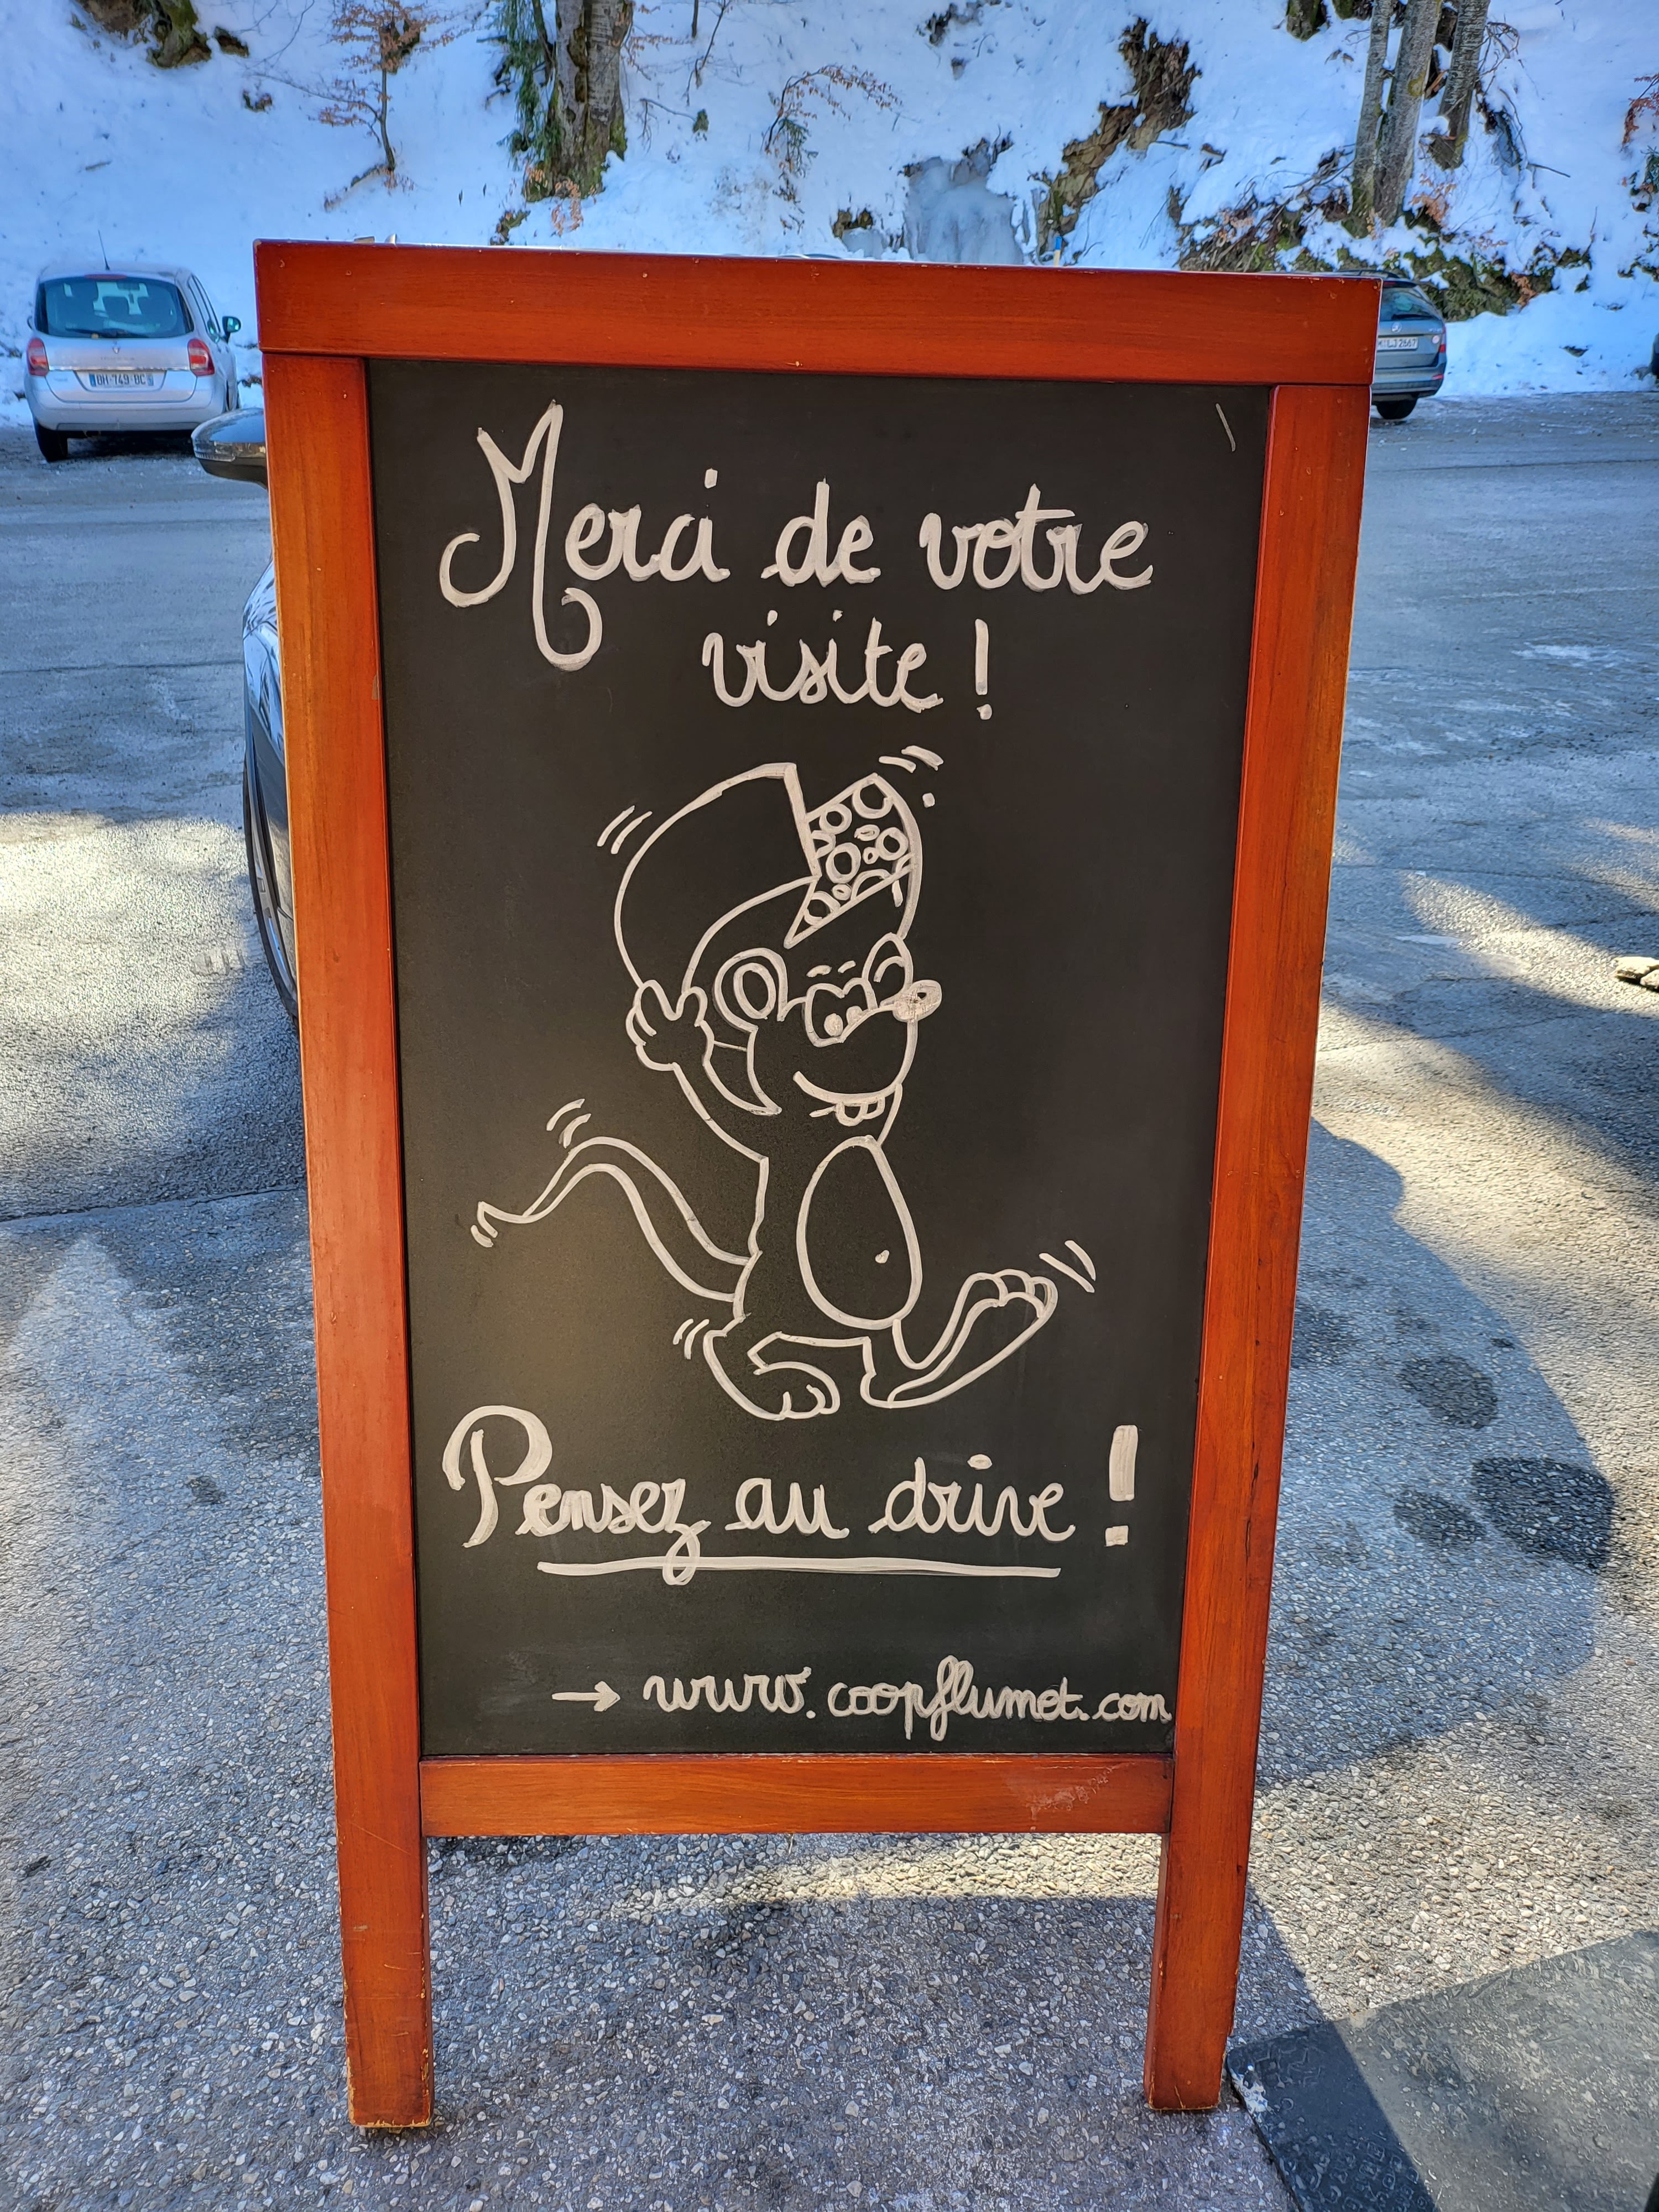 Merci de votre
visite !
Pensez au drive !
→ www.coopflumet.com
BH-749-BC